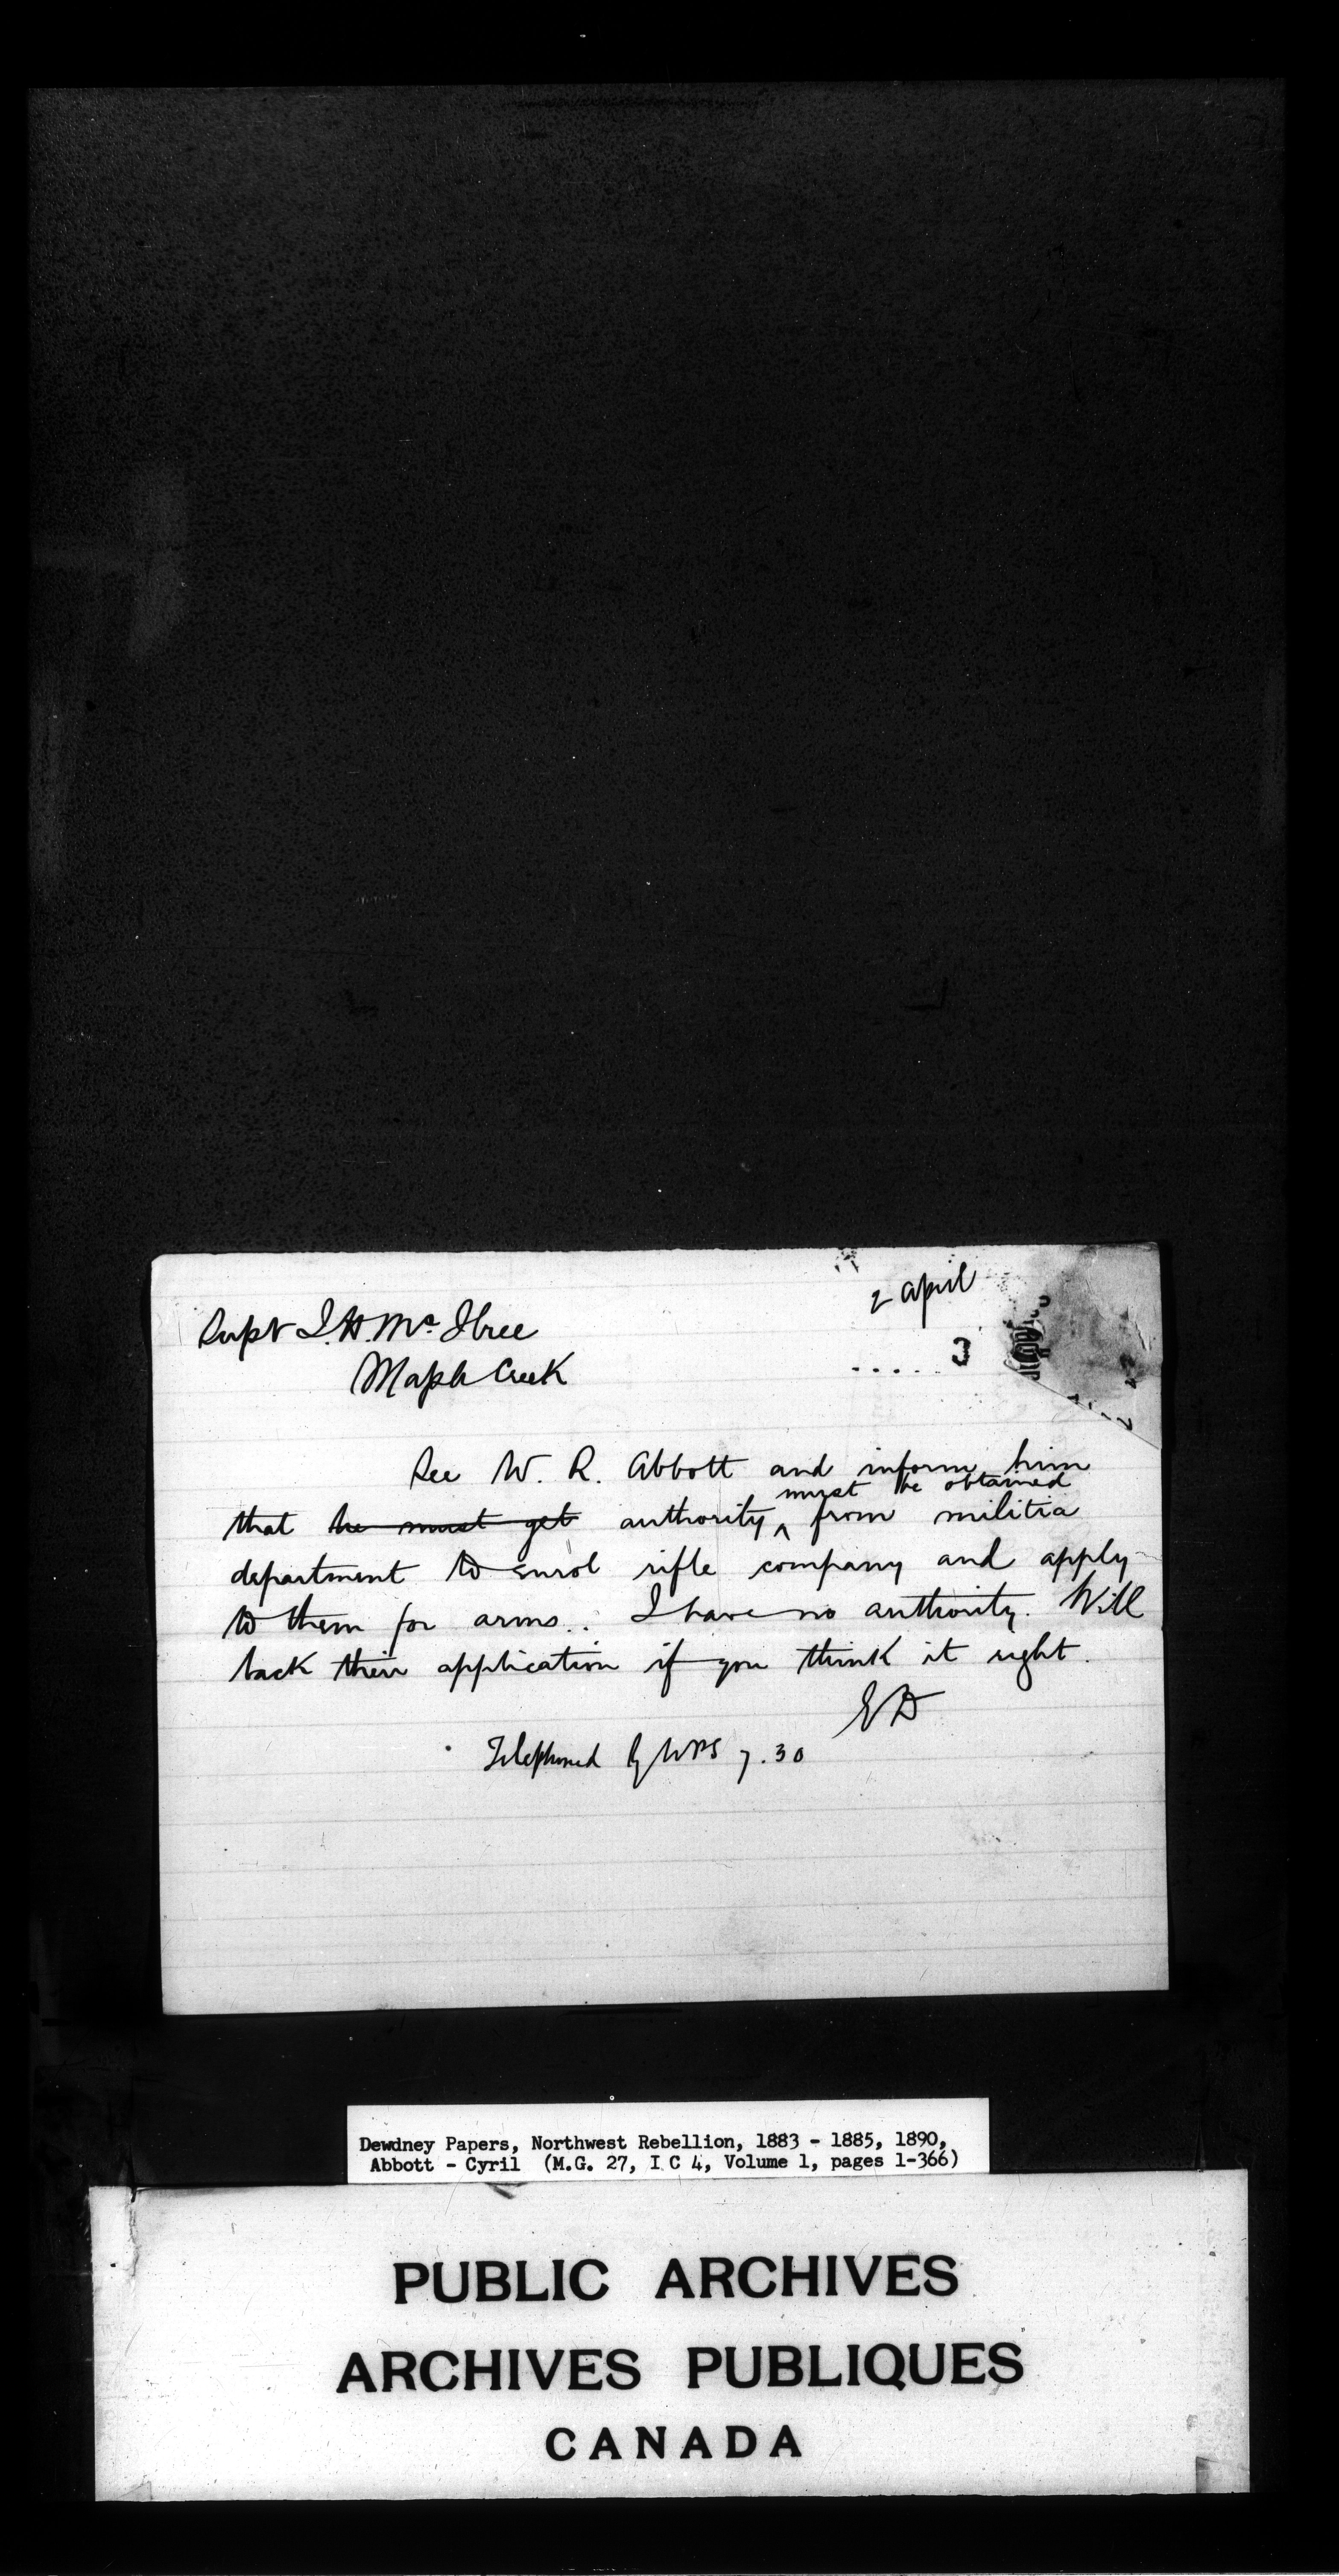 2 April
Supt J.H. Mc Illree
Maple Creek
3
See W. R. Abbott and inform him
must be obtained
that he must get authority ^ from militia
department to enrol rifle company and apply
to them for arms.. I have no authority. Will
back their application if you think it right.
ED
Telephoned by WPS 7.30
Dewdney Papers, Northwest Rebellion, 1883 - 1885, 1890,
Abbott - Cyril (M.G. 27, I C 4, Volume 1, pages 1-366)
PUBLIC ARCHIVES
ARCHIVES PUBLIQUES
CANADA